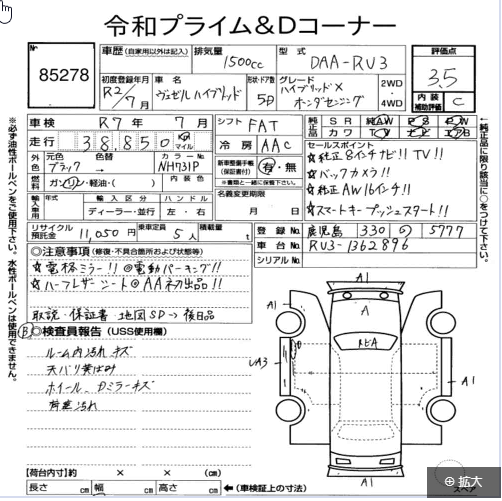 令和プライム&Dコーナー
No 85278
車歴 (自家用以外は記入) 排気量 1500cc 型式 DAA-RU3 評価点 3.5
初度登録年月 R2/7月 車名 ヴェゼルハイブリッド 形状・ドア数 5D グレード ハイブリッドX ホンダセンシング 2WD・4WD 内装補助評価 C
車検 R7年 7月 シフト FAT 純正品 SR AW PS PW
走行 38,850 km マイル 冷房 AAC カワ TV ナビ エアB
外色 元色 ブラック 色替 → カラーNo NH731P 新車整備手帳(保証書付) 有・無
燃料 ガソリン・軽油・( ) 内装色 *書類と一緒に保管下さい。
輸入車用 年式 輸入区分 ディーラー・並行 ハンドル 左・右 名義変更期限 月 日
リサイクル預託金 11,050円 乗車定員 5人 積載量 t
セールスポイント
☆純正8インチナビ!! TV!!
☆バックカメラ!!
☆純正AW16インチ!!
☆スマートキープッシュスタート!!
登録No 鹿児島 330 の 5777
車台No RU3-1362896
シリアルNo
◎注意事項 (修復・不具合箇所および状態等)
☆電格ミラー!! @電動パーキング!!
☆ハーフレザーシート@AA初出品!!
取説・保証書・地図SD→後日品
B ◎検査員報告 (USS使用欄)
ルーム内汚れキズ
天バリ黄ばみ
ホイール、ドミラーキズ
荷室汚れ
A1
A1
A1
REA
UA3
A1
A1
【荷台内寸】約 × × (cm)
長さ cm 幅 cm 高さ cm ←(車検証上の寸法)
スペア
拡大
※必ず油性ボールペンをご使用下さい。水性ボールペンは使用できません。
←純正品に限り該当に○をつけて下さい。